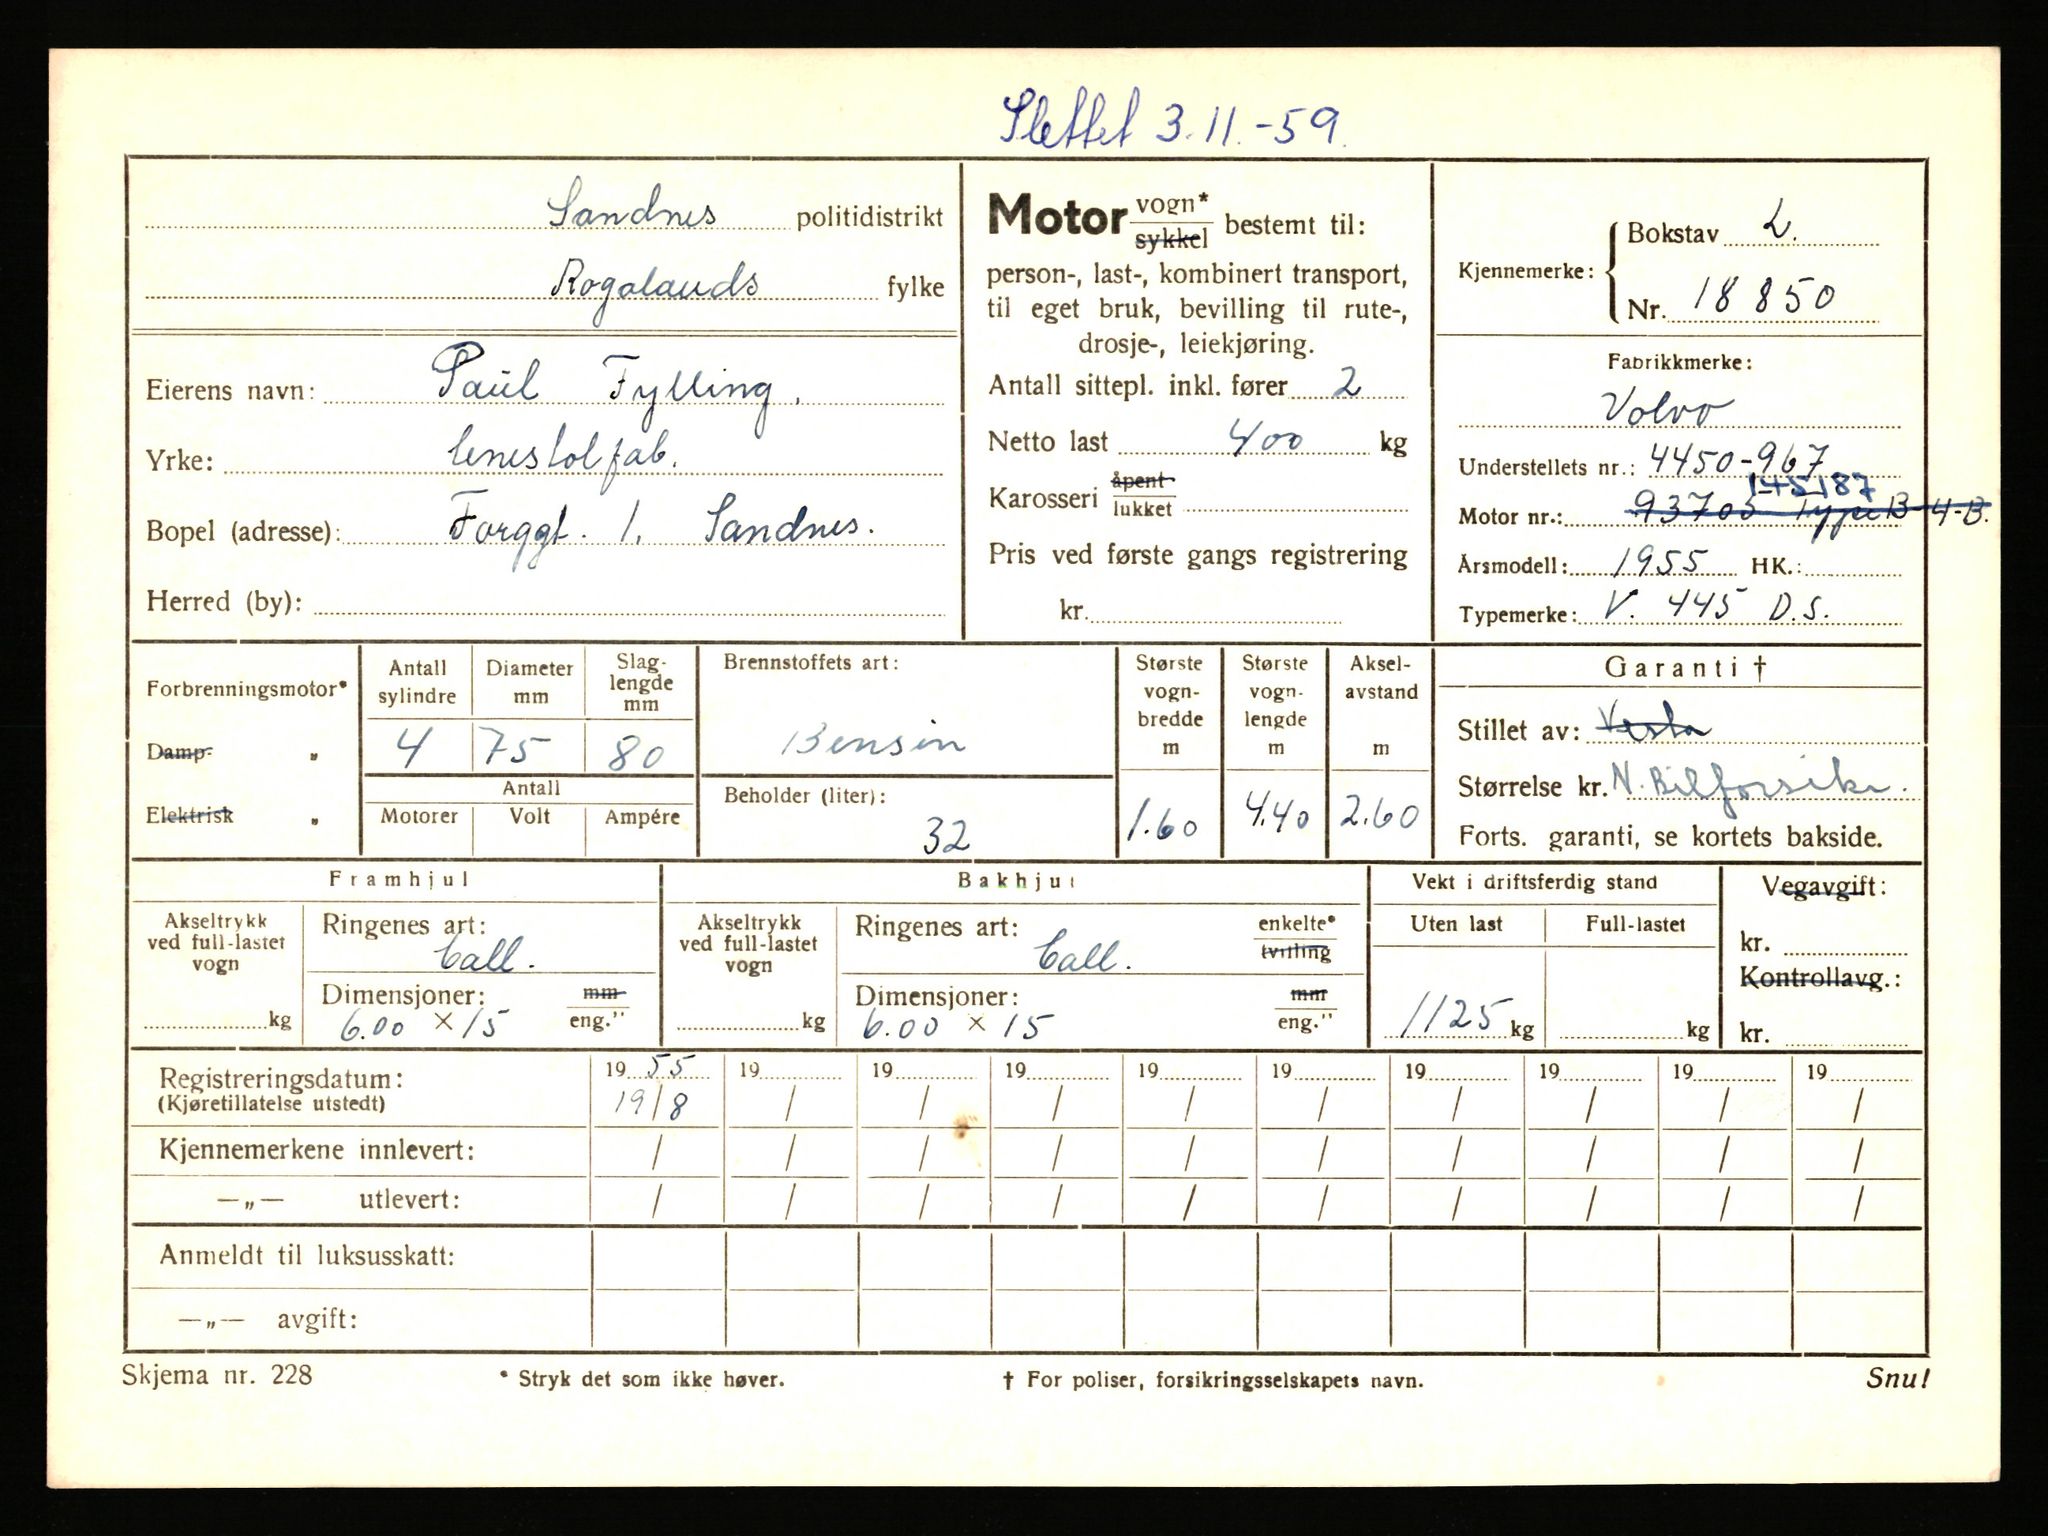 Slettet 3.11.-59.
Sandnes politidistrikt
Rogalands fylke
Eierens navn: Paul Fylling.
Yrke: lenestolfab.
Bopel (adresse): Forggt. 1. Sandnes.
Herred (by):
Motor vogn* sykkel bestemt til:
person-, last-, kombinert transport,
til eget bruk, bevilling til rute-,
drosje-, leiekjøring.
Antall sittepl. inkl. fører 2
Netto last 400 kg
Karosseri åpent lukket
Pris ved første gangs registrering
kr.
Kjennemerke: Bokstav L.
Nr. 18850
Fabrikkmerke:
Volvo
Understellets nr.: 4450-967
145187
Motor nr.: 93703 Type B-4-B.
Årsmodell: 1955 HK.:
Typemerke: V. 445 D.S.
Forbrenningsmotor*
Damp- „
Elektrisk „
Antall sylindre Diameter mm Slag-lengde mm
4 75 80
Antall
Motorer Volt Ampére
Brennstoffets art:
Bensin
Beholder (liter):
32
Største vogn-bredde m
1.60
Største vogn-lengde m
4.40
Aksel-avstand m
2.60
Garanti †
Stillet av: Vesta
Størrelse kr. N. Bilforsikr.
Forts. garanti, se kortets bakside.
Framhjul
Akseltrykk ved full-lastet vogn
kg
Ringenes art:
Call.
Dimensjoner: mm eng."
6.00 × 15
Bakhjul
Akseltrykk ved full-lastet vogn
kg
Ringenes art: enkelte* tvilling
Call.
Dimensjoner: mm eng."
6.00 × 15
Vekt i driftsferdig stand
Uten last Full-lastet
1125 kg kg
Vegavgift:
kr.
Kontrollavg.:
kr.
Registreringsdatum: 19 55 19 19 19 19 19 19 19 19 19
(Kjøretillatelse utstedt) 19/8 / / / / / / / / /
Kjennemerkene innlevert: / / / / / / / / / /
—„— utlevert: / / / / / / / / / /
Anmeldt til luksusskatt:
—„— avgift:
Skjema nr. 228 * Stryk det som ikke høver. † For poliser, forsikringsselskapets navn. Snu!